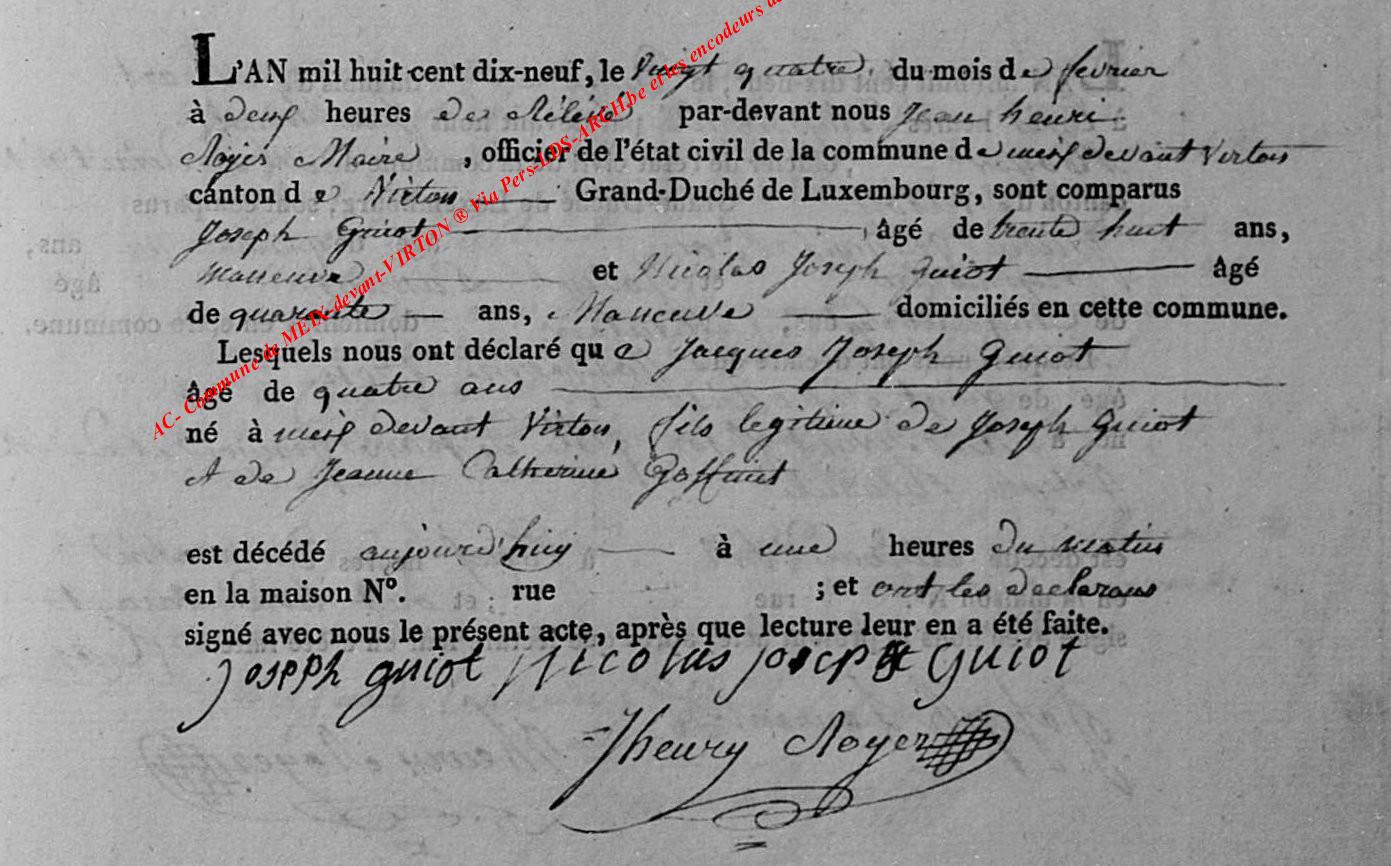 L'AN mil huit-cent dix-neuf, le Vingt quatre du mois de fevrier
à deux heures de Rélévé par-devant nous Jean henri
Noyer Maire, officier de l'état civil de la commune de meix devant Virton
canton de Virton Grand-Duché de Luxembourg, sont comparus
Joseph Guiot, âgé de trente huit ans,
Maneuve et Nicolas Joseph Guiot âgé
de quarante ans, Maneuve domiciliés en cette commune.
Lesquels nous ont déclaré que Jacques Joseph Guiot
âgé de quatre ans
né à meix devant Virton, fils legitime de Joseph Guiot
et de Jeanne Catherine Goffinet
est décédé aujourd'huy à une heures du matin
en la maison N°. rue ; et ont les declarans
signé avec nous le présent acte, après que lecture leur en a été faite.
Joseph guiot Nicolas joseph Guiot
Jhenry Noyer
AC- Commune de MEIX-devant-VIRTON ® Via Pers-LDS-ARCH.be et les encodeurs